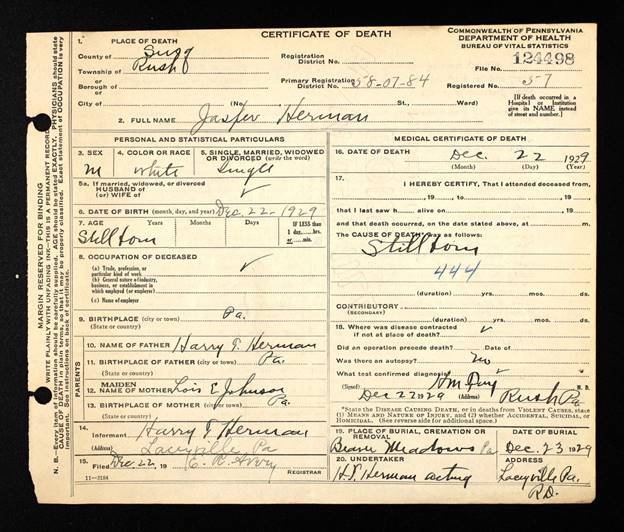 CERTIFICATE OF DEATH
COMMONWEALTH OF PENNSYLVANIA
DEPARTMENT OF HEALTH
BUREAU OF VITAL STATISTICS
1. PLACE OF DEATH
County of Susq
Township of Rush
or
Borough of
or
City of
Registration
District No.
Primary Registration
District No. 58-07-84
File No. 124498
Registered No. 57
(No. St. Ward)
[If death occurred in a Hospital or Institution give its NAME instead of street and number.]
2. FULL NAME Jasper Herman
PERSONAL AND STATISTICAL PARTICULARS
3. SEX
M
4. COLOR OR RACE
White
5. SINGLE, MARRIED, WIDOWED OR DIVORCED (write the word)
Single
5a. If married, widowed, or divorced
HUSBAND of
(or) WIFE of
6. DATE OF BIRTH (month, day, and year) Dec 22-1929
7. AGE Years Months Days If LESS than 1 day, hrs. or min.
Still born
8. OCCUPATION OF DECEASED
(a) Trade, profession, or particular kind of work
(b) General nature of industry, business, or establishment in which employed (or employer)
(c) Name of employer
9. BIRTHPLACE (city or town) Pa.
(State or country)
PARENTS
10. NAME OF FATHER Harry T. Herman
11. BIRTHPLACE OF FATHER (city or town) Pa.
(State or country)
12. MAIDEN NAME OF MOTHER Lois E Johnson
13. BIRTHPLACE OF MOTHER (city or town) Pa.
(State or country)
14. Informant Harry T. Herman
(Address) Laceyville Pa
15. Filed Dec 22, 19
REGISTRAR
11-3184
MEDICAL CERTIFICATE OF DEATH
16. DATE OF DEATH Dec. 22 1929
(Month) (Day) (Year)
17. I HEREBY CERTIFY, That I attended deceased from
, 19 , to , 19
that I last saw h alive on , 19
and that death occurred, on the date stated above, at m.
The CAUSE OF DEATH was as follows:
Still born
444
(duration) yrs. mos. ds.
CONTRIBUTORY
(SECONDARY)
(duration) yrs. mos. ds.
18. Where was disease contracted
if not at place of death?
Did an operation precede death? Date of
Was there an autopsy? no
What test confirmed diagnosis?
(Signed) M. D.
Dec 22 1929 (Address) Rush Pa
*State the DISEASE CAUSING DEATH, or in deaths from VIOLENT CAUSES, state (1) MEANS AND NATURE OF INJURY, and (2) whether ACCIDENTAL, SUICIDAL, or HOMICIDAL. (See reverse side for additional space.)
19. PLACE OF BURIAL, CREMATION OR REMOVAL DATE OF BURIAL
Beaver Meadows Pa Dec. 23 1929
20. UNDERTAKER (Address)
H.T. Herman acting Laceyville Pa.
R.D.
MARGIN RESERVED FOR BINDING
WRITE PLAINLY WITH UNFADING INK—THIS IS A PERMANENT RECORD